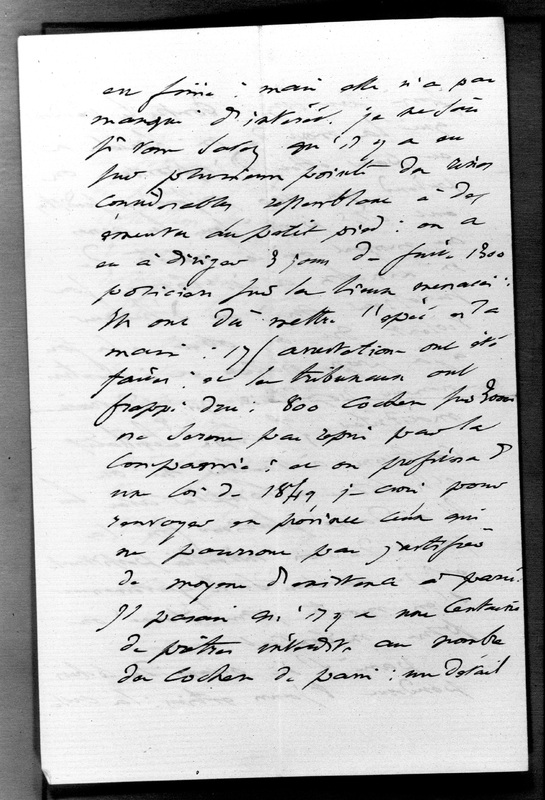 en finie : mais elle n'a pas
manqué d'intérêt. je ne sais
si vous savez qu'il y a eu
sur plusieurs points des rixes
considérables ressemblant à des
émeutes au petit pied : on a
eu à diriger 3 jours de suite 1300
policiers sur les lieux menacés :
Ils ont dû mettre l'épée à la
main : 175 arrestations ont été
faites : et les tribunaux ont
frappé dru : 800 cochers sur 3000
ne seront pas repris par la
Compagnie : et on profitera d
une loi de 1849 je crois pour
renvoyer en province ceux qui
ne pourront pas justifier
de moyens d'existence à paris.
Il parait qu'il y a une centaine
de prêtres interdits au nombre
des cochers de paris : un détail